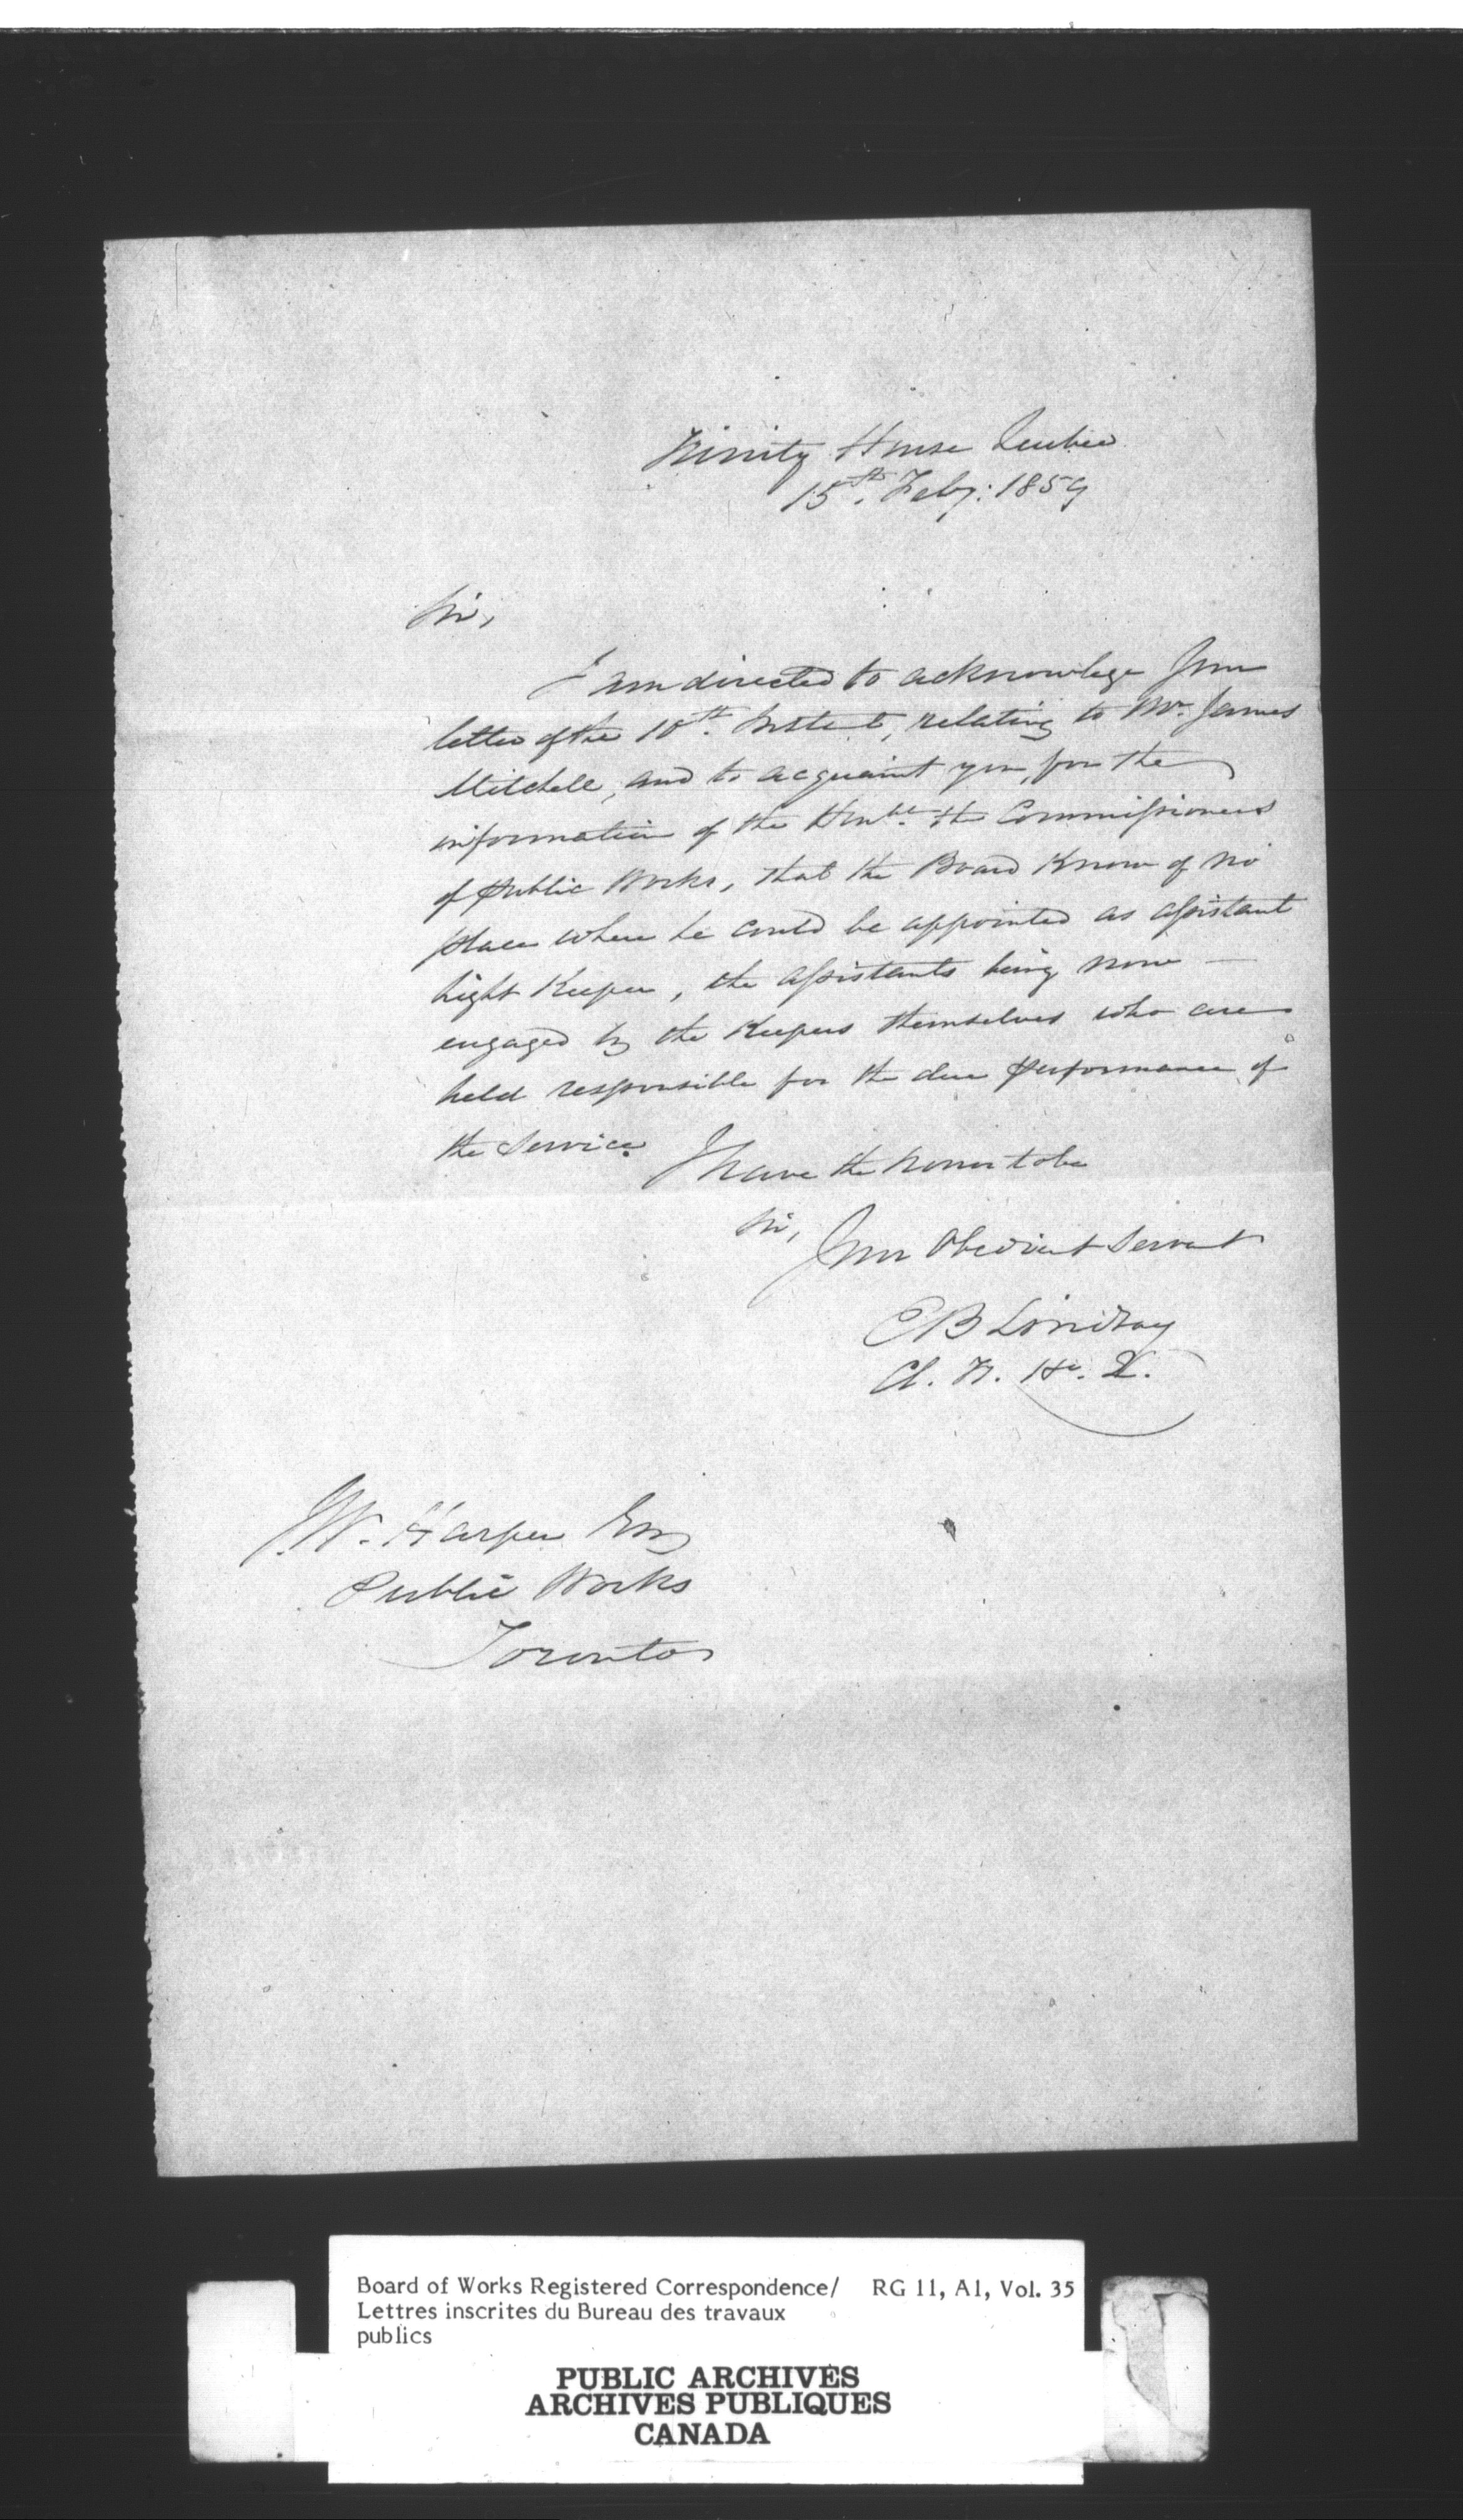 Trinity House Quebec
15th. Feby: 1859
Sir,
I am directed to acknowlege Your
letter of the 10th. Inst, relating to Mr. James
Mitchell, and to acquaint you, for the
information of the Honble. the Commissioners
of Public Works, that the Board know of no
place where he could be appointed as assistant
Light Keeper, the assistants being now —
engaged by the Keepers themselves who are
held responsible for the due performance of
the Service.
I have the honor to be
Sir,
Your Obedient Servant
E B Lindsay
Cl. Tr. He. Q.
J W. Harper Esq
Public Works
Toronto
Board of Works Registered Correspondence/ RG 11, A1, Vol. 35
Lettres inscrites du Bureau des travaux
publics
PUBLIC ARCHIVES
ARCHIVES PUBLIQUES
CANADA